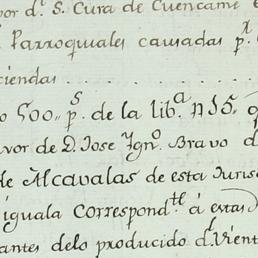 por d.ˢ S. Cura de Cuencamé
Parroquiales causadas p.ʳ
ciendas . . . . . . . .
o 500„ p.ˢ de la lib.ᵃ n 15„
vor de D. Jose Ygn.º Bravo d
de Alcavalas de esta Juris
iguala Correspond.ᵗᵉ á estas
antes delo producido d.ˡ Vient